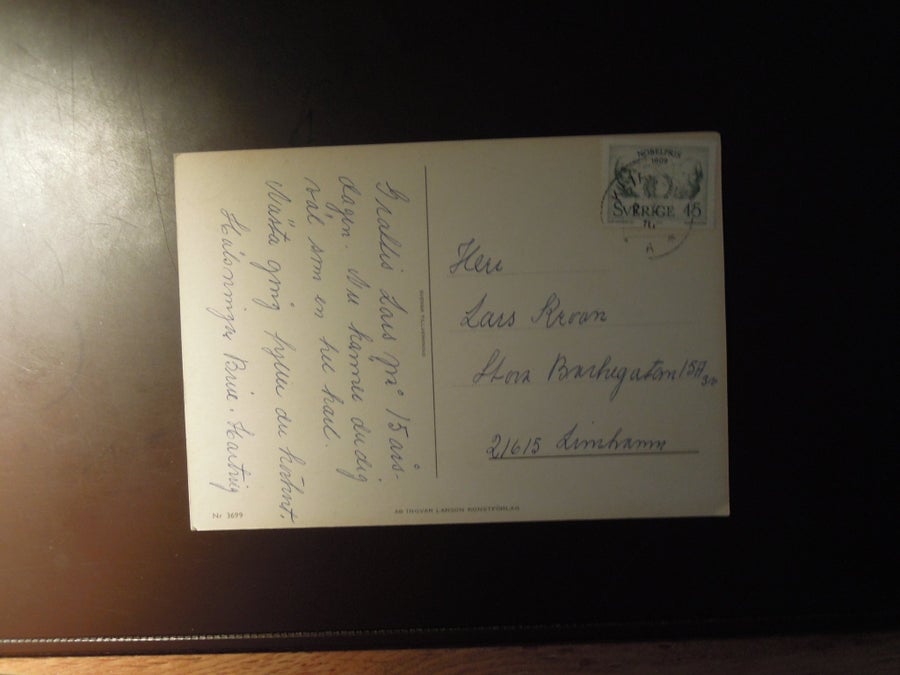 Grattis Lars på 15 års-
dagen. Nu känner du dig
väl som en hel karl.
Nästa gång fyller du
Hälsningar Hartvig
SVENSK TILLVERKNING
Nr 3699
AB INGVAR LARSON KONSTFÖRLAG
NOBELPRIS
1909
SVERIGE 45
Herr
Lars Kroon
Stora Bachegatan 15A
21615 Limhamn